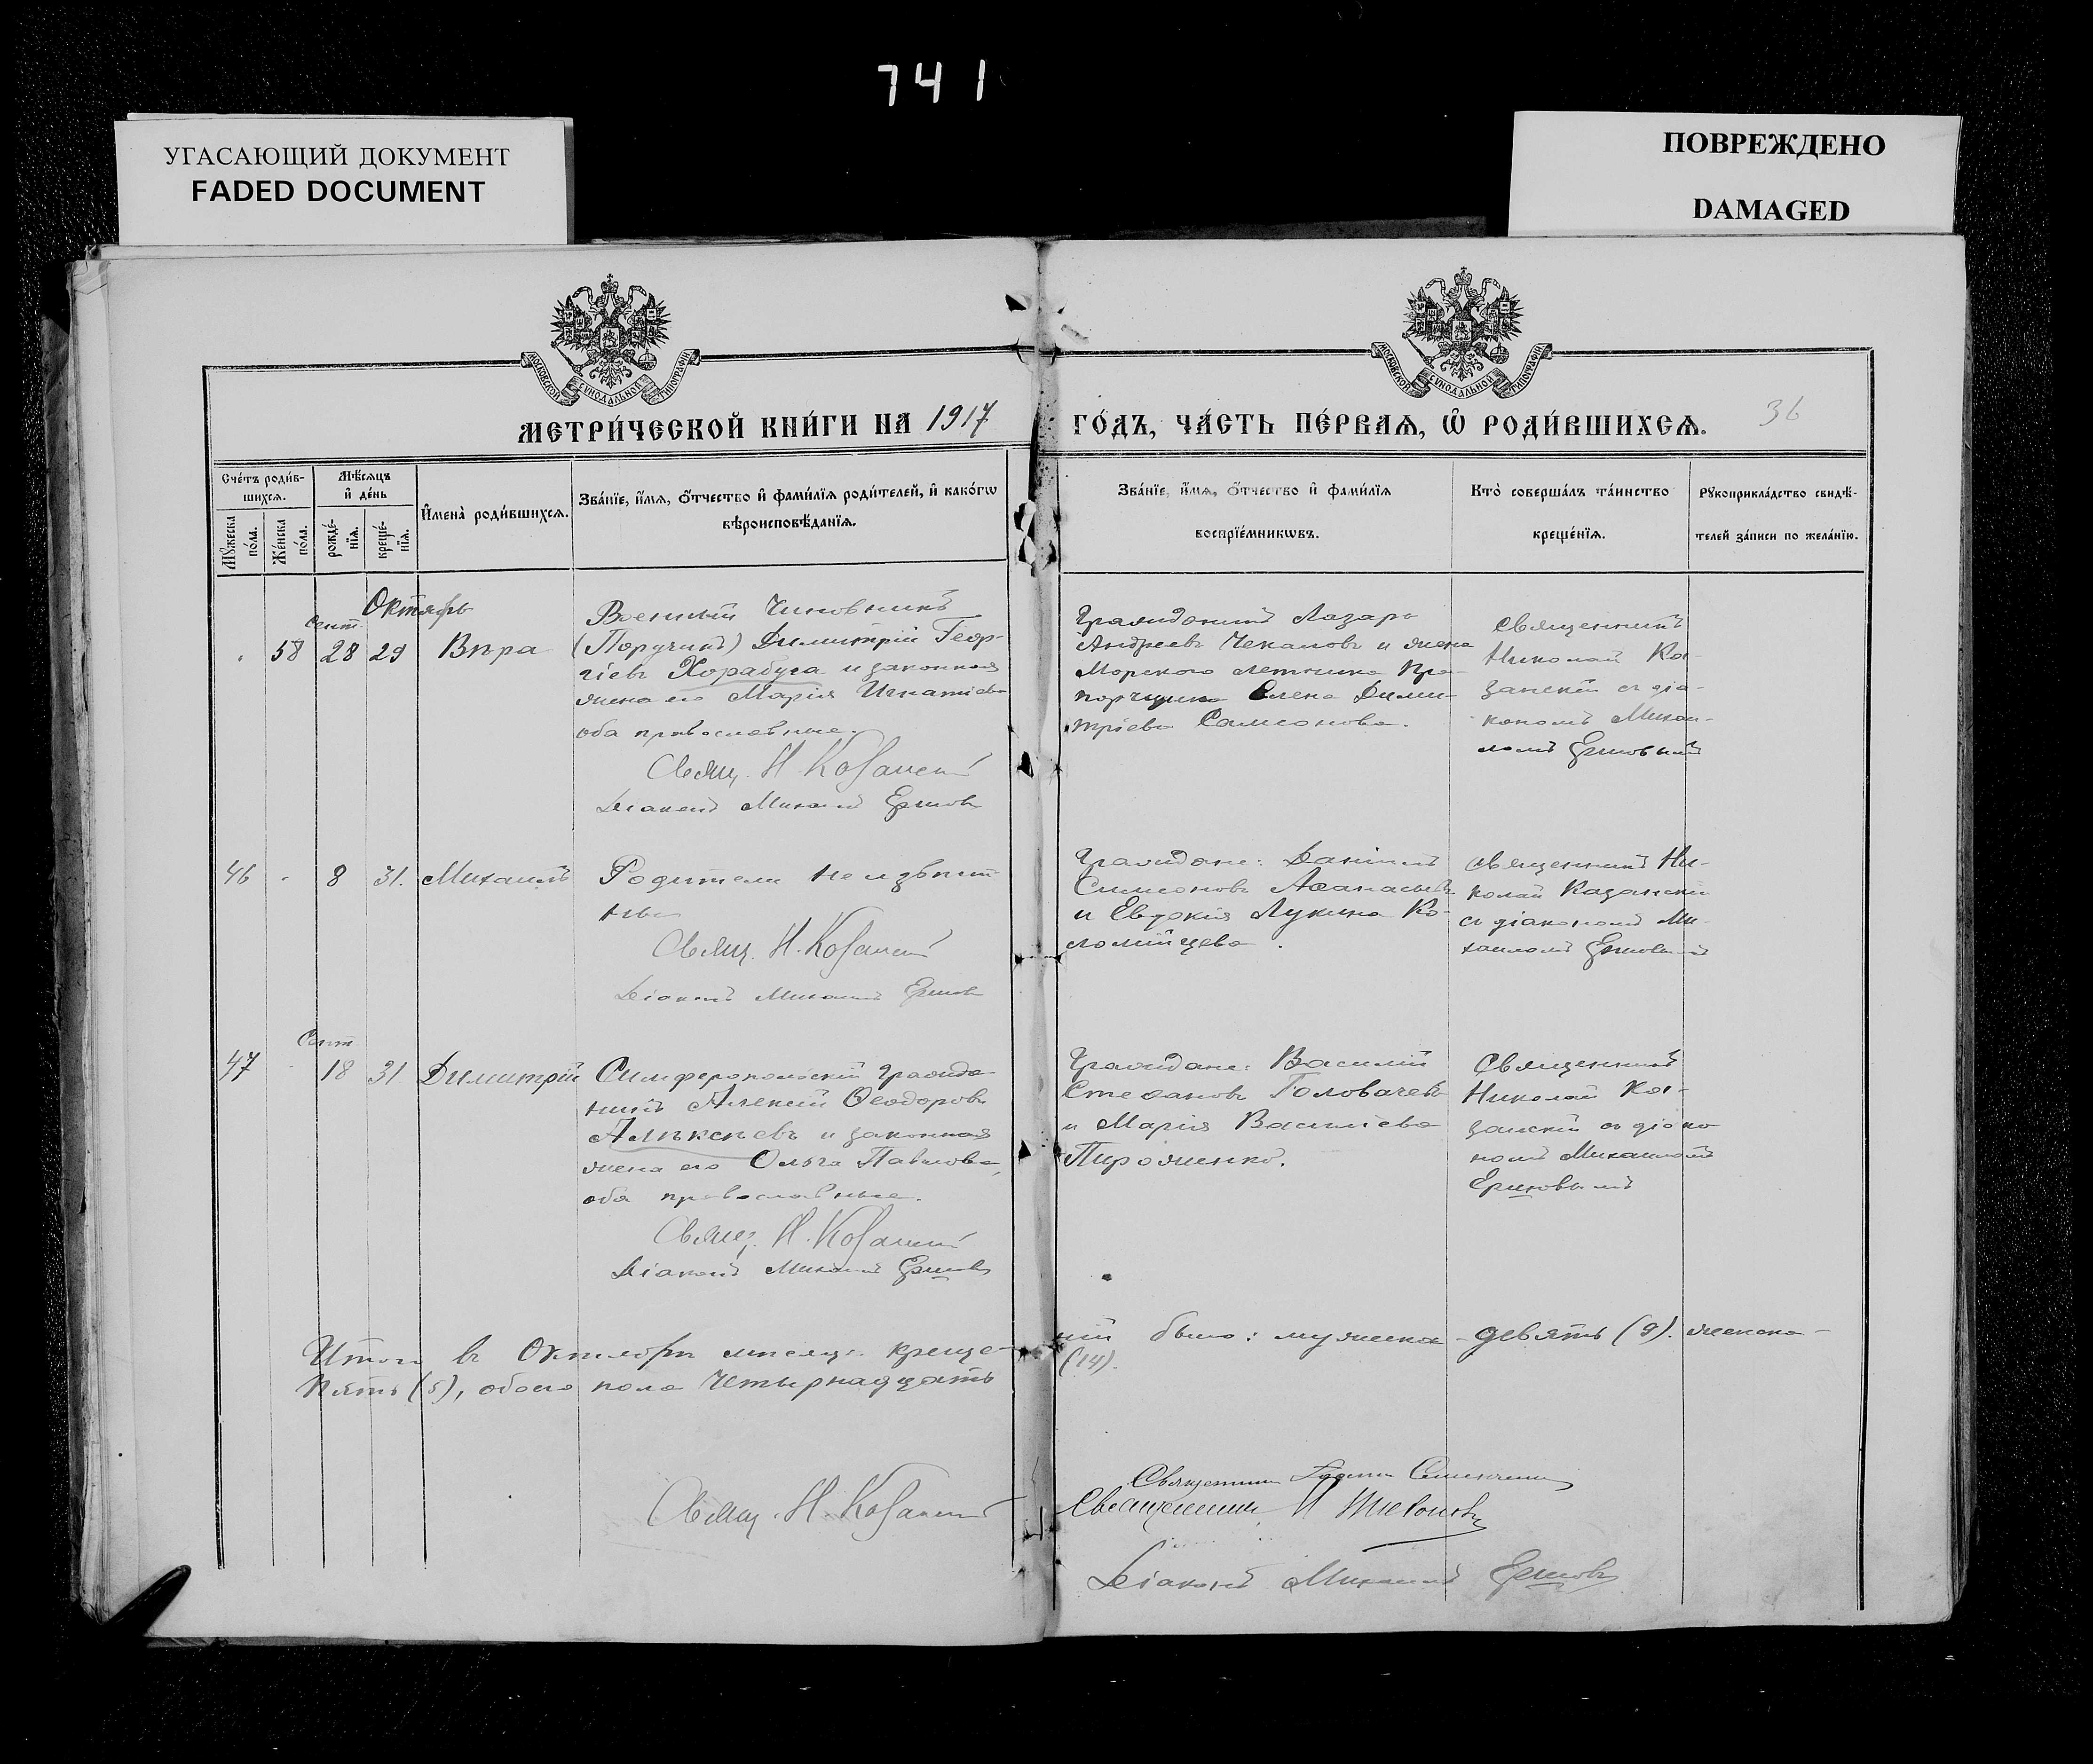 741
УГАСАЮЩИЙ ДОКУМЕНТ
FADED DOCUMENT
ПОВРЕЖДЕНО
DAMAGED
МОСКОВСКОЙ СѴНОДАЛЬНОЙ ТИПОГРАФІИ
МОСКОВСКОЙ СѴНОДАЛЬНОЙ ТИПОГРАФІИ
МЕТРИ́ЧЕСКОЙ КНИ́ГИ НА 1917
ГО́ДЪ, ЧА́СТЬ ПЕ́РВАѦ, Ѡ҆ РОДИ́ВШИХСѦ.
36
Сче́тъ роди́в-
шихсѧ.
Мꙋ́жеска по́ла.
Же́нска по́ла.
Мѣ́сѧцъ
и҆ де́нь
рожде́-
нїѧ.
креще́-
нїѧ.
И҆мена̀ роди́вшихсѧ.
Зва́нїе, и҆́мѧ, о҆́тчество и҆ фами́лїѧ роди́телей, и҆ како́гѡ
вѣроисповѣ́данїѧ.
Зва́нїе, и҆́мѧ, о҆́тчество и҆ фами́лїѧ
воспрїе́мникѡвъ.
Кто̀ соверша́лъ та́инство
креще́нїѧ.
Рꙋкоприкла́дство свидѣ́-
телей за́писи по жела́нїю.
Октябрь
Сент.
58 28 29 Вѣра
Военный Чиновникъ
(Поручикъ) Димитрій Геор-
гіевъ Хорабуга и законная
жена его Марія Игнатіева
оба православные.
Свящ. Н. Казанскій
Діаконъ Михаилъ Ершовъ
Гражданинъ Лазарь
Андреевъ Чекановъ и жена
Морского летчика Пра-
порщика Елена Дими-
тріева Самсонова.
Священникъ
Николай Ка-
занскій съ діа-
кономъ Михаи-
ломъ Ершовымъ
46 - 8 31. Михаилъ
Родители неизвѣст-
ны
Свящ. Н. Казанскій
Діаконъ Михаилъ Ершовъ
Граждане: Даніилъ
Симеоновъ Аѳанасьевъ
и Евдокія Лукина Ко-
ломійцева.
Священникъ Ни-
колай Казанскій
съ діакономъ Ми-
хаиломъ Ершовымъ
Сент
47 - 18 31 Димитрій
Симферопольскій гражда-
нинъ Алексій Ѳеодоровъ
Алексѣевъ и законная
жена его Ольга Павлова,
оба православные.
Свящ. Н. Казанскій
Діаконъ Михаилъ Ершовъ
Граждане: Василій
Стефановъ Головачевъ
и Марія Васильева
Пироженко.
Священникъ
Николай Ка-
занскій съ діако
номъ Михаиломъ
Ершовымъ
Итого въ Октябрѣ мѣсяцѣ креще-
ній было: мужска - девять (9). женска -
пять (5), обоего пола четырнадцать
(14).
Свящ. Н. Казанскій
Священникъ
Священникъ
Діаконъ Михаилъ Ершовъ